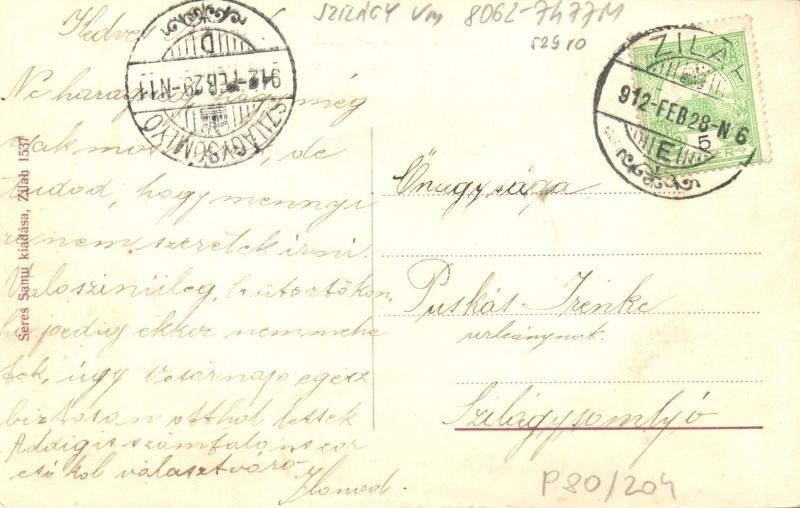 SZILÁGY Vm 8062-7477M
52910
Kedves
Ne haragudj, hogy még
csak most, de
tudod, hogy mennyi
re nem szeretek írni.
Valoszinüleg, csütörtökön,
ha pedig ekkor nemmehe
tek, úgy Vasárnap egész
biztosan otthol leszek
Addigis számtalanszor
csókol választ váró
Ilonod.
Seres Samu kiadása, Zilah 1537
D
912-FEB 29-N11
SZILÁGYSOMLYÓ
ZILAH
912-FEB 28-N 6
E
5
Önagysága
Puskás Irenke
urleánynak.
Szilágysomlyó
P80/204